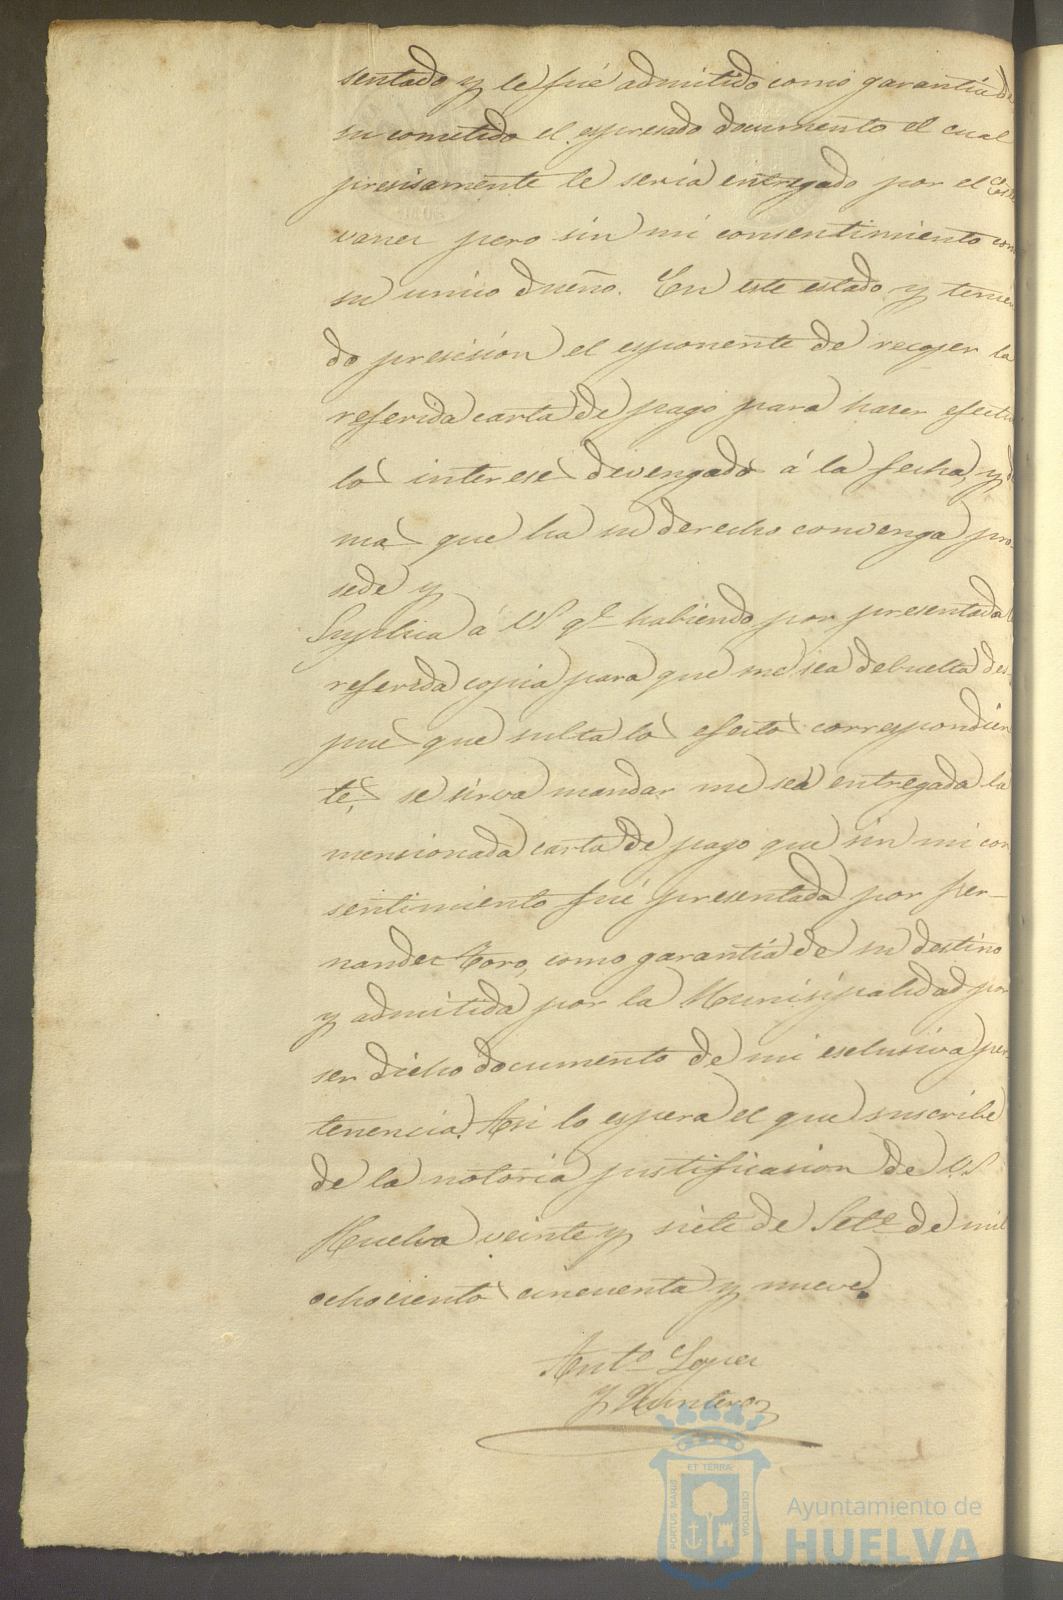 sentado y le fué admitido como garantía de
su cometido el espresado documento el cual
presisamente le seria entregado por el Este
vanez pero sin mi consentimiento como
su unico dueño. En este estado y tenien
do presision el esponente de recojer la
referida carta de pago para haser efecti
los intereses devengados á la fecha, y
mas que ha su derecho convenga pro-
sede y
Suplica á VS qe habiendo por presentada
referida copia para que me sea debuelta des-
pues que sulta los efectos correspondien
tes, se sirva mandar me sea entregada la
mensionada carta de pago que sin mi con
sentimiento fué presentada por Fer-
nandez Toro, como garantía de su destino
y admitida por la Munisipalidad por
ser dicho documento de mi esclusiva per
tenencia. Asi lo espera el que suscribe
de la notoria justificasion de VS
Huelva veinte y siete de Sete de mil
ochocientos cincuenta y nueve.
Anto Lopez
y Quintero
PORTUS MARIS ET TERRAE CUSTODIA
Ayuntamiento de
HUELVA